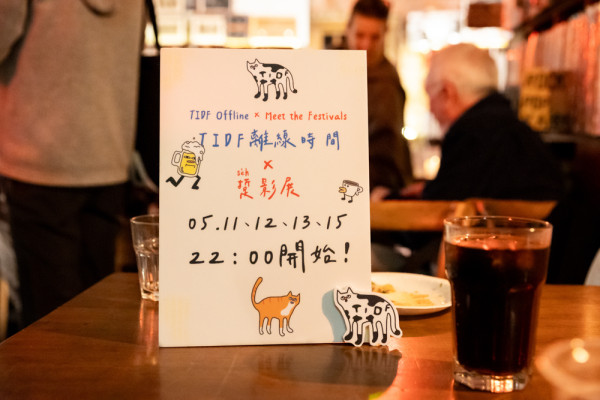 TIDF
TIDF Offline × Meet the Festivals
TIDF離線時間
×
sin
蜇影展
05.11、12、13、15
22：00開始！
TIDF